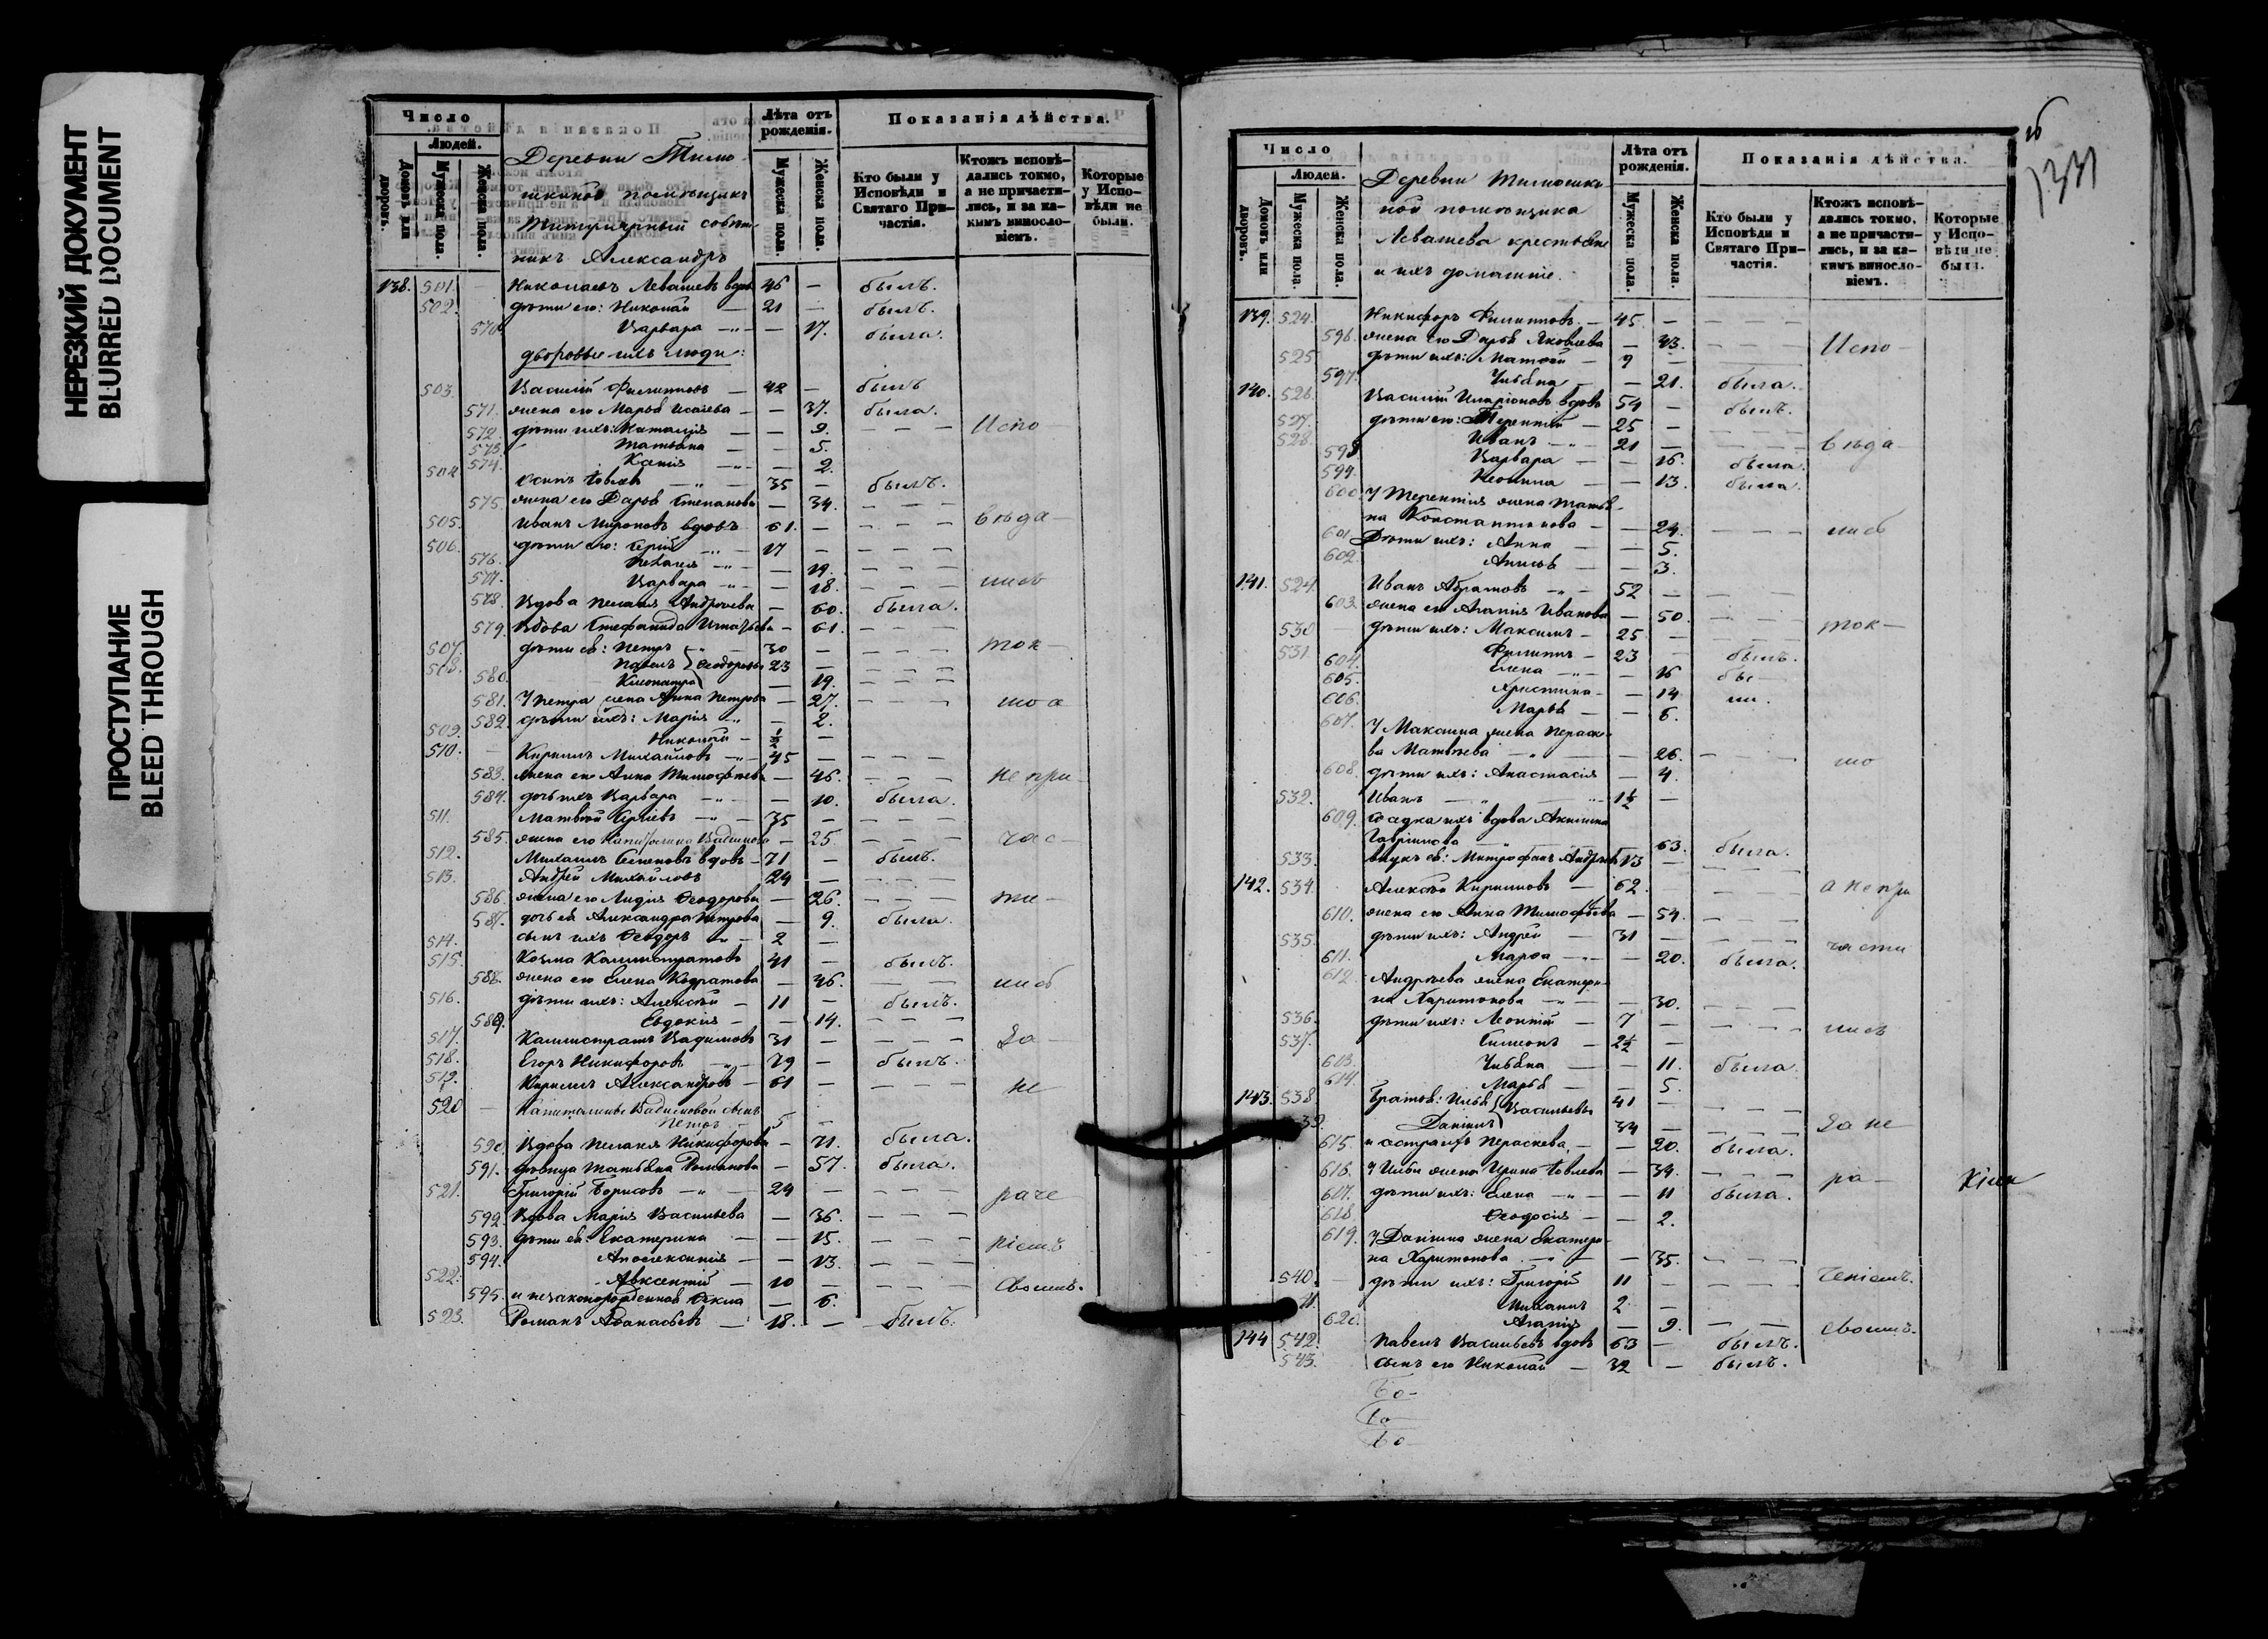 НЕРЕЗКИЙ ДОКУМЕНТ
BLURRED DOCUMENT
ПРОСТУПАНИЕ
BLEED THROUGH
Число
Людей.
Домовъ или дворовъ.
Мужеска пола.
Женска пола.
Деревни Тимо-
шкиной помѣщикъ
Титулярный совѣт-
никъ Александръ
Лѣта отъ рожденія.
Мужеска пола.
Женска пола.
Показанія дѣйства.
Кто были у Исповѣди и Святаго При-частія.
Ктожъ исповѣ-дались токмо, а не причасти-лись, и за ка-кимъ винослo-віемъ.
Которые у Испо-вѣди не были.
138. 501. Николаевъ Левашевъ вдов 46 — былъ.
502. дѣти его: Николай — 21 — былъ.
570 Варвара — — 17. была.
дворовые ихъ люди:
503. Василій Филипповъ — 42 — былъ
571. жена его Марья Исаева — — 37. была.
572. дѣти ихъ: Наталія — — 9. — — — Испо
573. Татьяна — — 5.
574. Ксенія — — 2.
504 35 — былъ.
575. жена его Дарья Степанова — 34. — — —
505. Иванъ Мироновъ вдовъ 61. — — — — вѣда—
506. дѣти его: — 17 — — — —
576. Пелагія — — 19. — — —
577. Варвара — — 18. — — — лись
578. Вдова Пелагія Андреева — 60. была.
579. Вдова Стефанида Игнатьева — 61. — — —
507. дѣти ея: Петръ — 30 — — — — ток—
508. Павелъ } Ѳеодоровы 23 — — — —
580. Клеопатра — 19. — — —
581. У Петра жена Анна Петрова — 27. — — — мо а
582. дѣти ихъ: Марія — — 2.
509. Николай — ½ —
510. Кириллъ Михайловъ — 45 — — — —
583. жена его Анна Тимофѣева — 46. — — — не при—
584. дочь ихъ Варвара — — 10. была.
511. Матвѣй — 35 — — — —
585. жена его — 25 — — — час—
512. Михаилъ Семеновъ вдовъ — 71 — былъ.
513. Андрей Михайловъ 24 — — — —
586. жена его Лидія Ѳеодорова — 26. — — — ти—
587. дочь ея Александра Петрова — 9. была.
514. сынъ ихъ Ѳеодоръ — 2 —
515. Козма Каллистратовъ 41 — былъ.
588. жена его Елена Кодратова — 46. — — лись
516. дѣти ихъ: Алексѣй — 11 — былъ.
589. Евдокія — — 14. — — —
517. Каллистратъ Вадимовъ 31 — — — — За—
518. Егоръ Никифоровъ — 79 — былъ.
519. Кириллъ Александровъ — 61 — — — — не
520 — Капитолины Вадимовой сынъ
Петръ — 5 —
590. Вдова Пелагія Никифорова — 71. была.
591. дѣвица Татьяна Романова — 57. была.
521. Григорій Борисовъ — 24 — — — — раче
592. Вдова Марія Васильева — 36. — — —
593. дѣти ея: Екатерина — — 15. — — — ніемъ
594. — 13. — — —
522. Авксентій — 10 — — — — своимъ.
595. и незаконорожденная Ѳекла — 6.
523. Романъ Аѳанасьевъ — 18. — былъ.
1331
Число
Людей.
Домовъ или дворовъ.
Мужеска пола.
Женска пола.
Деревни Тимошки-
ной помѣщика
Левашева крестьяне
и ихъ домашніе.
Лѣта отъ рожденія.
Мужеска пола.
Женска пола.
Показанія дѣйства.
Кто были у Исповѣди и Святаго При-частія.
Ктожъ исповѣ-дались токмо, а не причасти-лись, и за ка-кимъ винослo-віемъ.
Которые у Испо-вѣди не были.
139. 524. Никифоръ Филипповъ — 45 — — — —
596. жена его Дарья Яковлева — 43. — — — Испо—
525. дѣти ихъ: Матвѣй — 9 —
597. Ульяна — — 21. была.
140. 526. Василій Иларіоновъ вдовъ 54 — былъ.
527. дѣти его: Терентій — 25 — — — —
528. Иванъ — 21 — — — — вѣда—
598 Варвара — — 16. была.
599. Неонила — — 13. была.
600 У Терентія жена Татья-
на Константинова — — 24. — — — лись
601 Дѣти ихъ: Анна — — 5.
602. Анисья — — 3.
141. 529. Иванъ Абрамовъ — 52 — — —
603. жена его Агапія Иванова — 50. — — —
530 дѣти ихъ: Максимъ — 25 — — — — ток—
531 Филиппъ — 23 — былъ.
604. Елена — — 16 бы—
605. Христина — — 14 ли.
606. Марья — — 6.
607. У Максима жена Параске-
ва Матвѣева — — 26. — — мо
608. дѣти ихъ: Анастасія — 4.
532. Иванъ — 1½ —
609. сосѣдка ихъ вдова Акилина
Гавріилова — 63. была.
533. внукъ ея: Митрофанъ Андреевъ 13 — — — —
142. 534. Алексѣй Кирилловъ — 62 — — — а не при
610. жена его Анна Тимофѣева — 54. — — —
535. дѣти ихъ: Андрей — 31 — — — — части
611. Марѳа — — 20. была.
612 Андреева жена Екатери-
на Харитонова — — 30. — — —
536. дѣти ихъ: Леонтій — 7 — — — — лись
537. Симеонъ — 2½ —
603. Ульяна — — 11. была.
614. Марья — — 5.
143. 538 Братья: Илья } Васильевы 41 — — — —
39. Даніилъ 34 — — — — За не—
615. и сестра ихъ Параскева — 20. была.
616. У Ильи жена Ирина — 34. — — — ра—
607. дѣти ихъ: Елена — — 11 была.
618. Ѳеодосія — — 2.
619. У Даніила жена Екатери-
на Харитонова — — 35. — — —
540. дѣти ихъ: Григорій 11 — — — — ченіемъ.
41. Михаилъ 2 —
620. Агапія — 9. — — своимъ.
144 542. Павелъ Васильевъ вдовъ 63 — былъ.
543. сынъ его Николай — 32 — былъ.